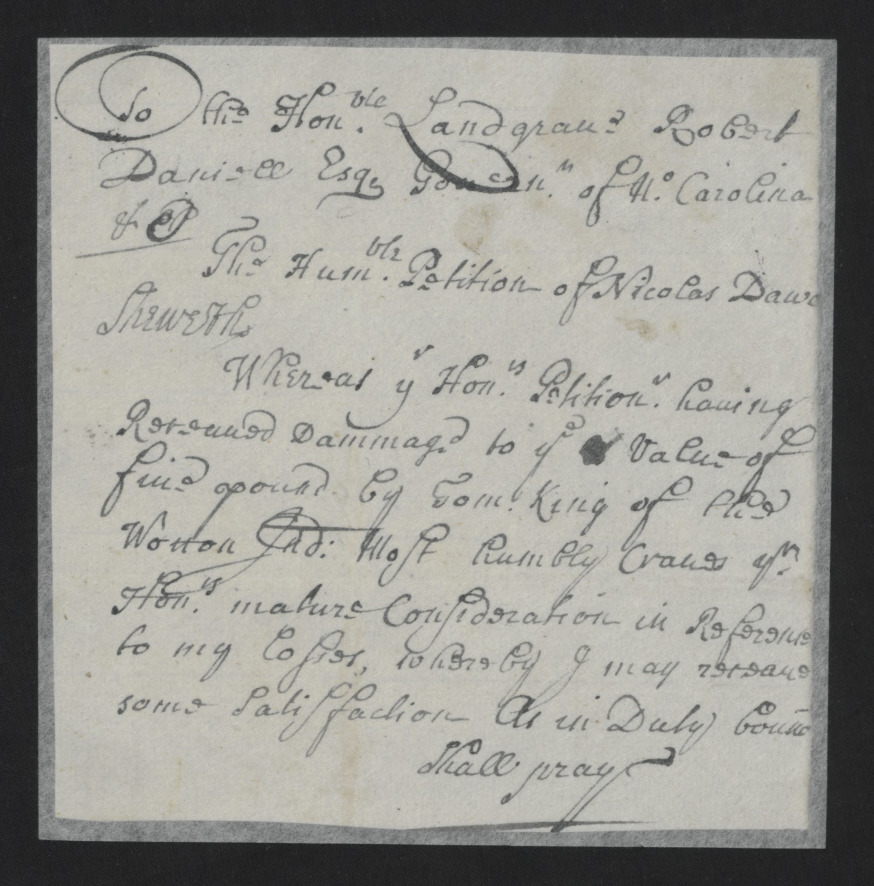 To the Honble. Landgrave Robert
Daniell Esqr Governr. of No. Carolina
&c
The Humble. Petition of Nicolas Dawe
Sheweth
Whereas yr Honrs. Petitionr. having
Receaued Dammage to ye Value of
five pound by Tom: King of the
Woccon Ind: Most humbly Craues yr
Honrs. mature Consideration in Reference
to my losses, whereby I may receaue
some satisfaction As in Duty bound
shall pray